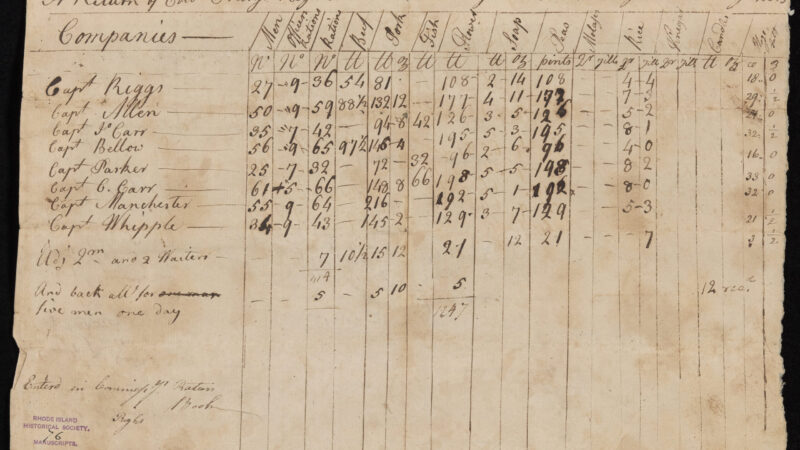 A Return of
Companies — Men Officers Rations Rations Beef Pork Fish Flower Soap Peas Rice Vinegar Candles
No No No tt tt oz tt tt tt oz pints gills tt oz
Capt Riggs 27 - 9 - 36 54 81 - - 108 2 - 14 108 4 - 4 18 - 0
Capt Allen 50 - 9 - 59 88½ 132 12 - 177 4 11 177 7 - 29 ½
Capt Jo Carr 35 - 7 - 42 - 94 - 8 42 126 3 - 5 126 5 - 2
Capt Bellow 56 - 9 - 65 97½ 145 - 4 195 5 - 3 195 8 1 32 ½
Capt Parker 25 - 7 - 32 - 72 - 32 96 2 - 6 96 4 0 16 - 0
Capt C. Carr 61 + 5 - 66 - 148 8 66 198 5 - 5 198 8 2 33 0
Capt Manchester 55 - 9 - 64 - 216 - 192 5 - 1 192 8 - 0 32 0
Capt Whipple 34 - 9 - 43 - 145 - 2 129 3 - 7 - 129 5 - 3 21 ½
Adj 2m and 2 Waiters 7 10½ 15 12 21 - 12 21 7 3 ½
414
And back all for one man 5 - 5 10 5 12
five men one day 1247
Enterd in Rations
Book
RHODE ISLAND
HISTORICAL SOCIETY.
76
MANUSCRIPTS.